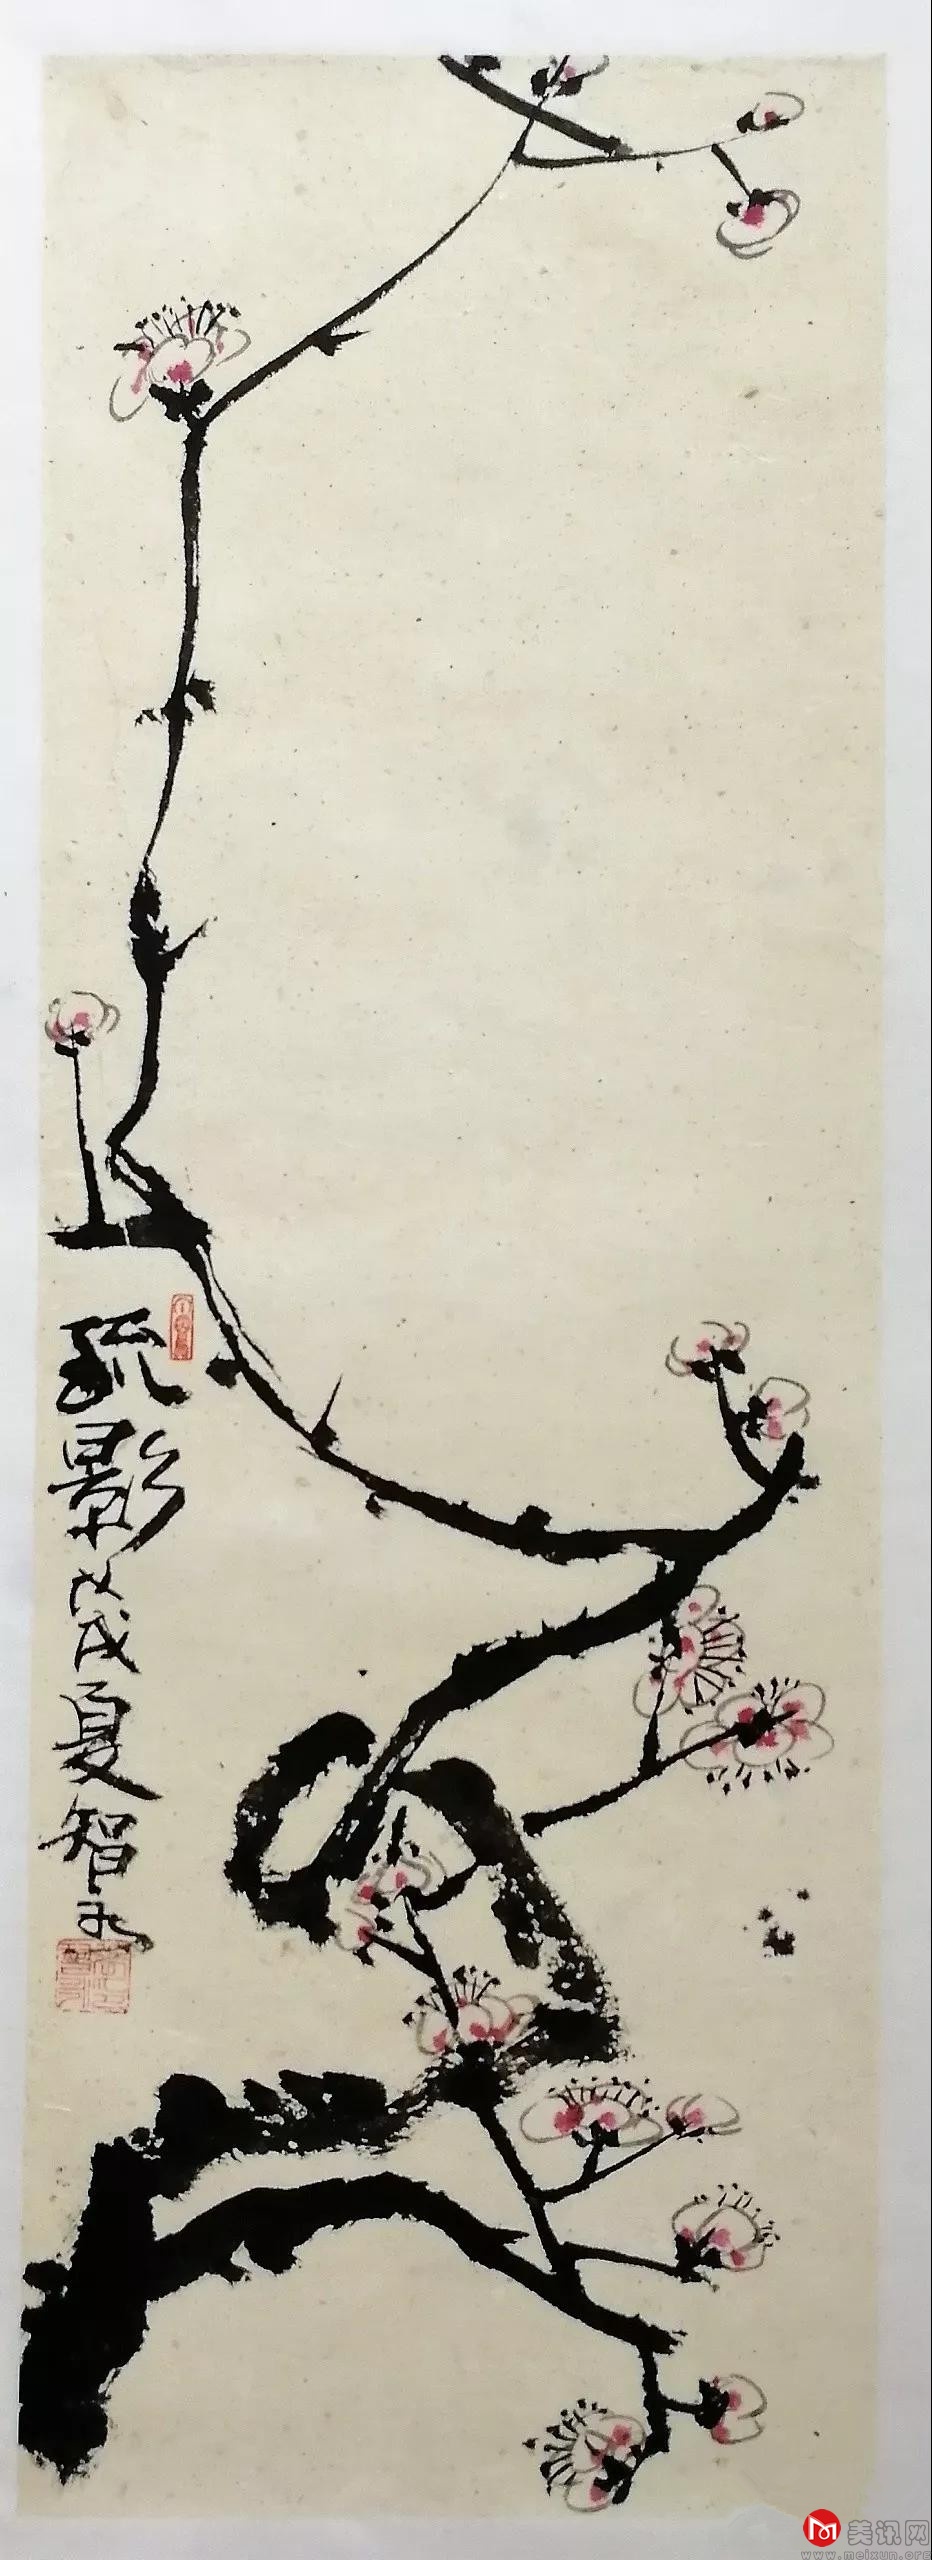 疏影
戊戌夏智永
美讯网
www.meixun.org